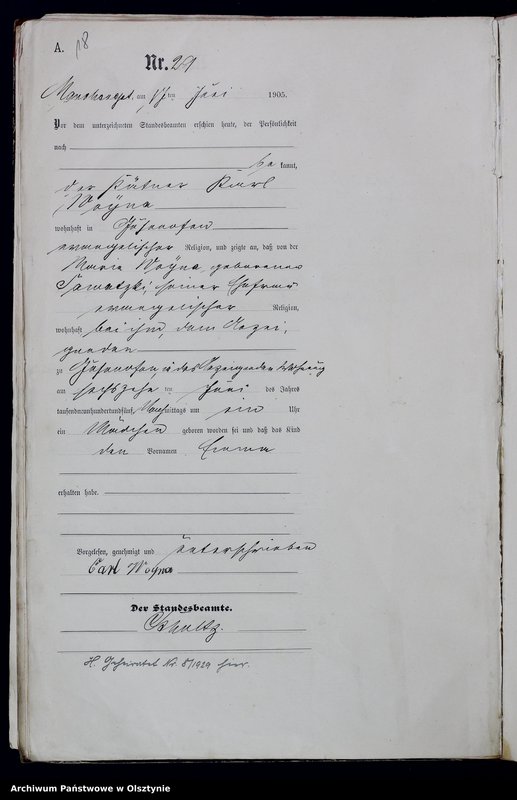 A. 18
Nr. 29
am 17 ten Juni 1905.
Vor dem unterzeichneten Standesbeamten erschien heute, der Persönlichkeit
nach
be kannt,
der Kätner Karl
Woyna
wohnhaft in
evangelischer Religion, und zeigte an, daß von der
Marie Woyna, geborenen
seiner Ehefrau
evangelischer Religion,
wohnhaft bei ihm, dem Anzei-
genden
zu in des Anzeigenden Wohnung
am sechszehn ten Juni des Jahres
tausendneunhundertundfünf, Nachmittags um ein Uhr
ein Mädchen geboren worden sei und daß das Kind
den Vornamen Emma
erhalten habe.
Vorgelesen, genehmigt und unterschrieben
Carl Woyna
Der Standesbeamte.
H. Geheiratet Nr. 8/1929 hier.
Archiwum Państwowe w Olsztynie